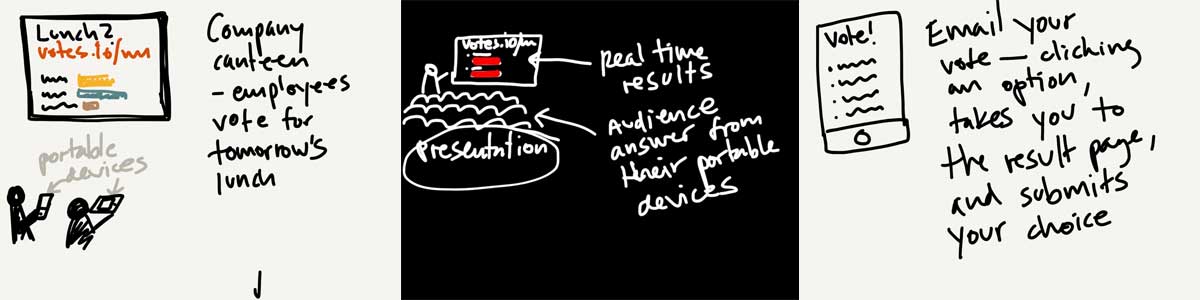 Lunch?
votes.io/nn
portable
devices
Company
canteen
- employees
vote for
tomorrow's
lunch
votes.io/nn
Real time
results
Audience
answer from
their portable
devices
Presentation
Vote!
Email your
vote — clicking
an option,
takes you to
the result page,
and submits
your choice